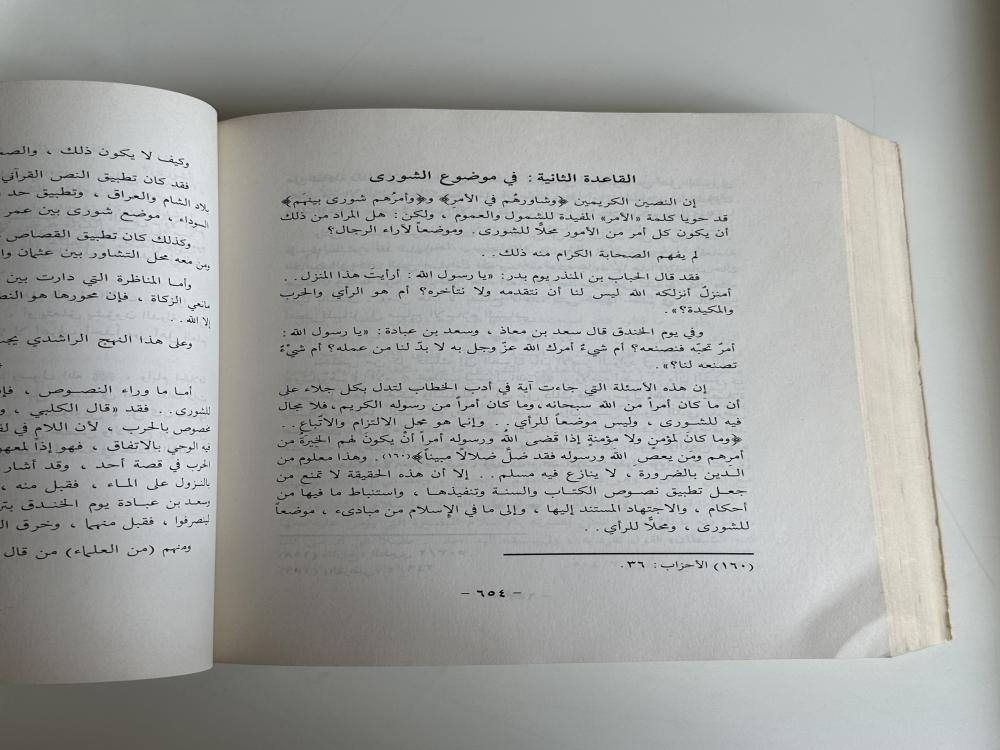 القاعدة الثانية: في موضوع الشورى
إن النصين الكريمين ﴿وشاورهُم في الأمرِ﴾ و﴿وأمرُهم شورى بينَهُم﴾
قد حويا كلمة «الأمر» المفيدة للشمول والعموم ، ولكن: هل المراد من ذلك
أن يكون كل أمر من الأمور محلًا للشورى. وموضعاً لآراء الرجال؟
لم يفهم الصحابة الكرام منه ذلك . .
فقد قال الحباب بن المنذر يوم بدر: «يا رسول الله : أرأيتَ هذا المنزل . .
أمنزلٌ أنزلكه الله ليس لنا أن نتقدمه ولا نتأخره؟ أم هو الرأي والحرب
والمكيدة؟» .
وفي يوم الخندق قال سعد بن معاذ ، وسعد بن عبادة: «يا رسول الله :
أمرٌ تحبّه فنصنعه؟ أم شيءٌ أمرك الله عزّ وجل به لا بدّ لنا من عمله؟ أم شيءٌ
تصنعه لنا؟» .
إن هذه الأسئلة التي جاءت آية في أدب الخطاب لتدل بكل جلاء على
أن ما كان أمراً من الله سبحانه ، وما كان أمراً من رسوله الكريم ، فلا مجال
فيه للشورى ، وليس موضعاً للرأي . . وإنما هو محل الالتزام والاتّباع . .
﴿وما كانَ لمؤمنٍ ولا مؤمنةٍ إذا قضى اللهُ ورسوله أمراً أنْ يكونَ لهم الخِيَرةُ من
أمرهم ومَن يعصِ الله ورسوله فقد ضلّ ضلالًا مبيناً﴾(١٦٠). وهذا معلوم من
الدين بالضرورة ، لا ينازع فيه مسلم . . إلا أن هذه الحقيقة لا تمنع من
جعل تطبيق نصوص الكتاب والسنة وتنفيذها ، واستنباط ما فيها من
أحكام ، والاجتهاد المستند إليها ، وإلى ما في الإسلام من مبادىء ، موضعاً
للشورى ، ومحلًا للرأي . .
(١٦٠) الأحزاب: ٣٦.
- ٦٥٤ -
وكيف لا يكون ذلك ،
فقد كان تطبيق النص القرآني
الشام والعراق ، وتطبيق حد
السوداء ، موضع شورى بين عمر
وكذلك كان تطبيق القصاص
ومن معه محل التشاور بين عثمان
وأما المناظرة التي دارت بين
مانعي الزكاة ، فإن محورها هو
إلا الله . .
وعلى هذا النهج الراشدي
أما ما وراء النصوص ،
للشورى . . فقد «قال الكلبي ،
مخصوص بالحرب ، لأن اللام في
فيه الوحي بالاتفاق ، فهو إذاً
الحرب في قصة أحد ، وقد أشار
بالنزول على الماء ، فقبل منه ،
وسعد بن عبادة يوم الخندق
لينصرفوا ، فقبل منهما ، وخرق
ومنهم (من العلماء) من قال